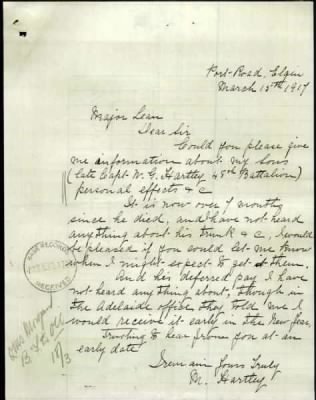 Port-Road, Elgin
March 15th 1917
Major Lean
Dear Sir
Could you please give
me information about my Sons
(late Capt W. G. Hartley 48th Battalion)
personal effects & C
It is now over 7 months
since he died, and I have not heard
anything about his Trunk & C, I would
be pleased if you could let me know
when I might expect to get it them.
And his deferred pay I have
not heard anything about, though in
the Adelaide office, they told me I
would receive it early in the New Year,
Trusting to hear from you at an
early date
I remain Yours Truly
M. Hartley
BASE RECORDS
RECEIVED